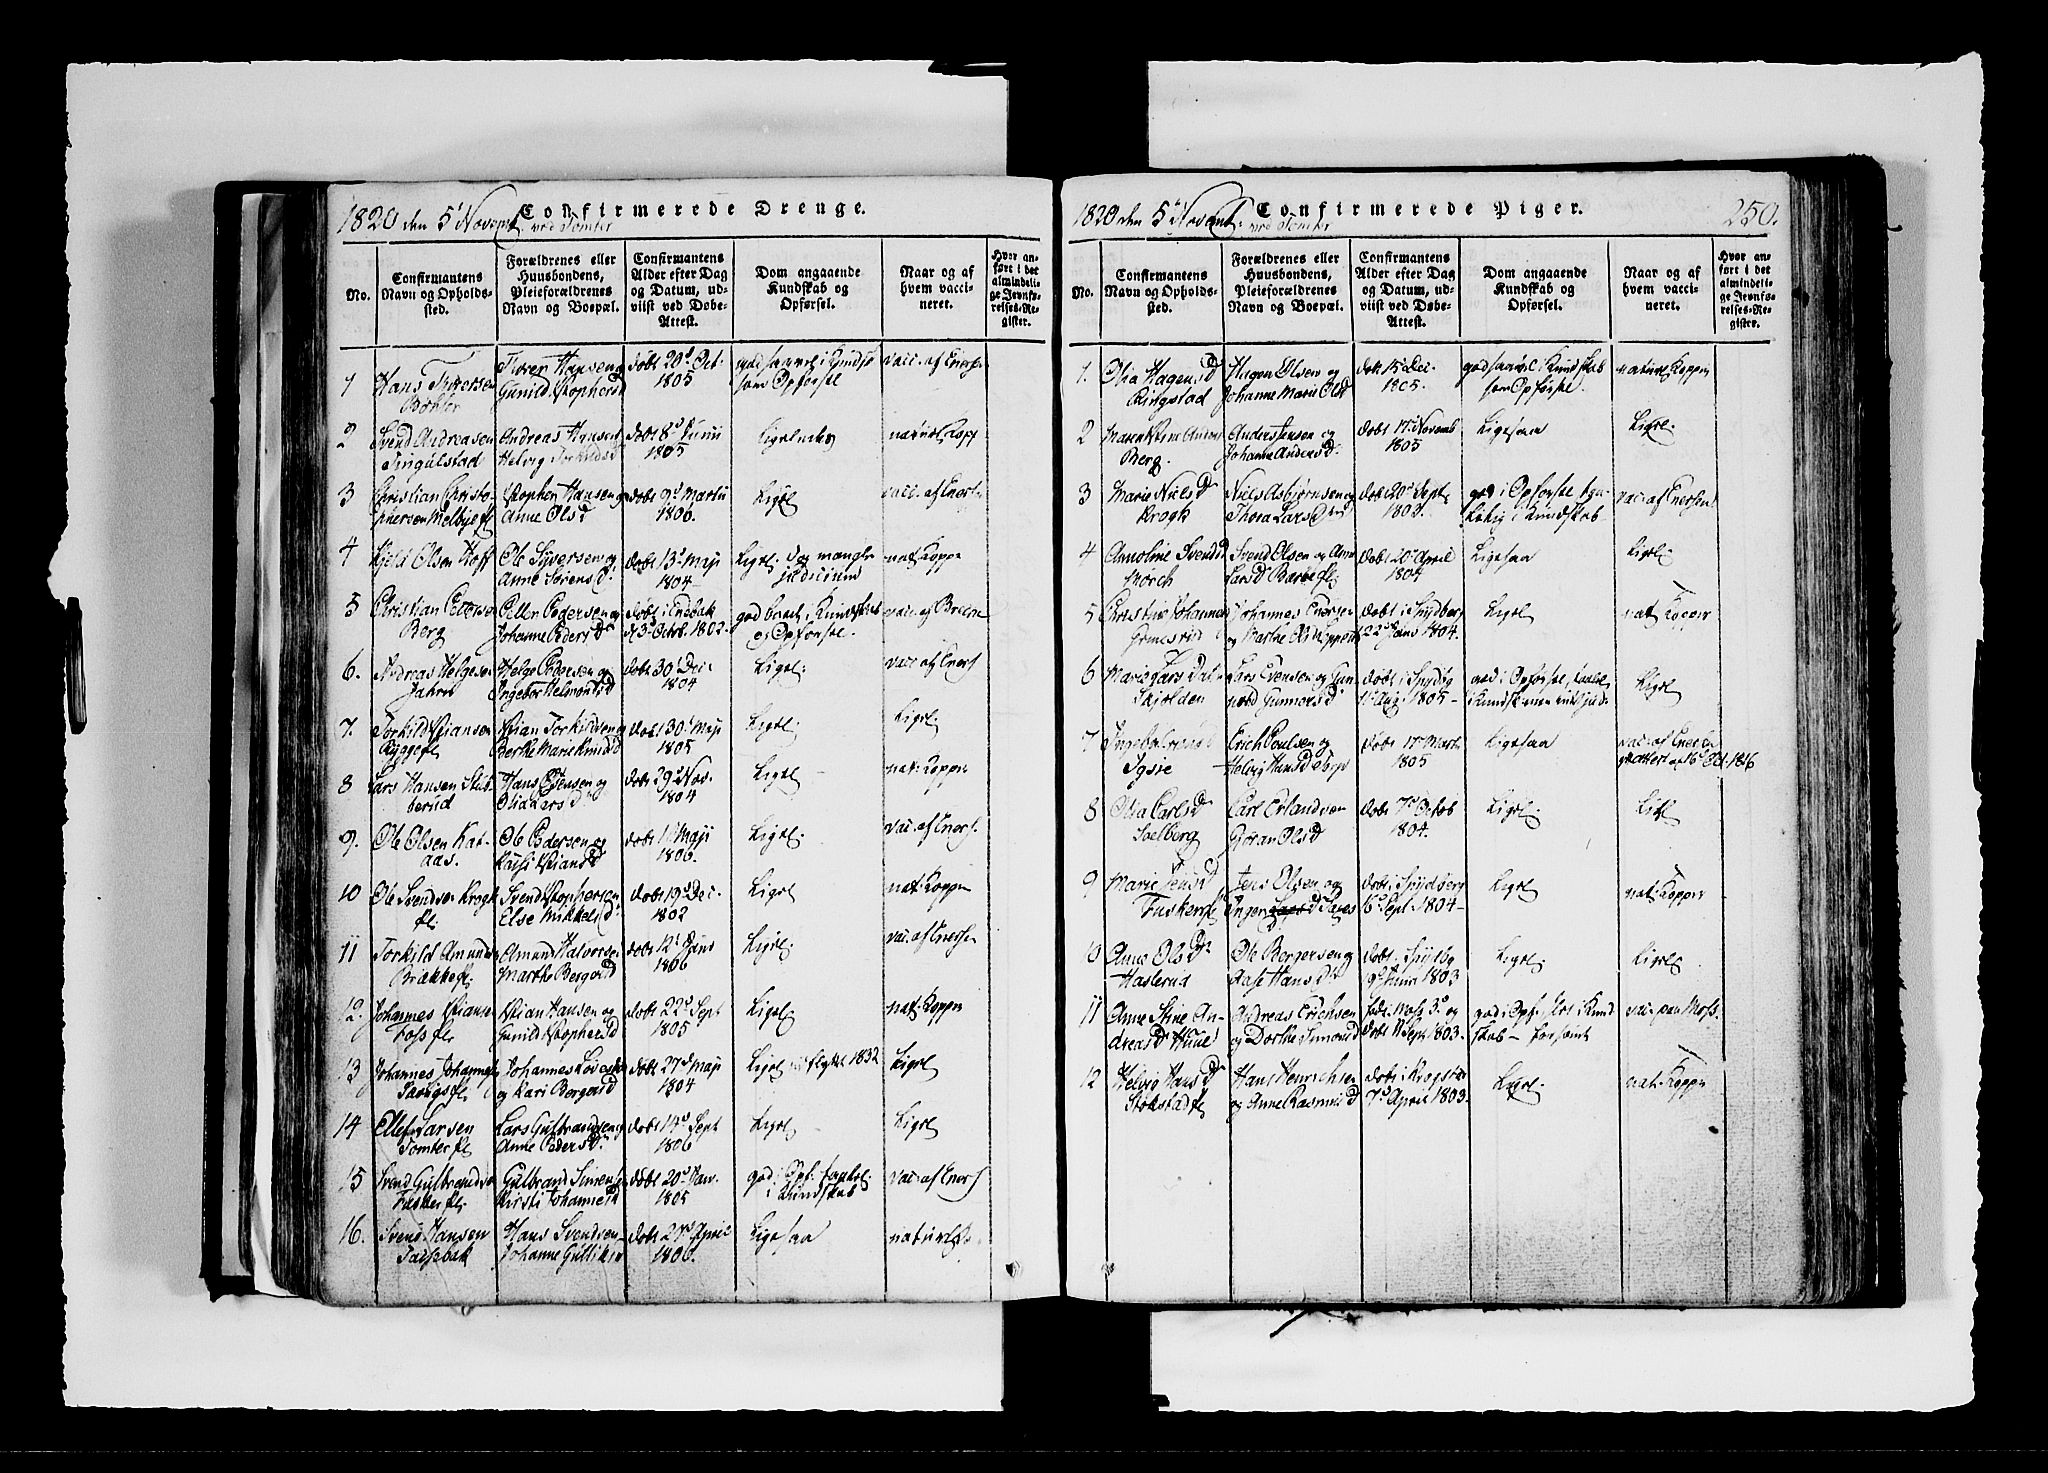 1820 den 5 Novemb Confirmerede Drenge.
ved Tomter
No.
Confirmantens
Navn og Opholds-
sted.
Forældrenes eller
Huusbondens,
Pleieforældrenes
Navn og Boepæl.
Confirmantens
Alder efter Dag
og Datum, ud-
viist ved Døbe-
Attest.
Dom angaaende
Kundskab og
Opførsel.
Naar og af
hvem vacci-
neret.
Hvor an-
ført i det
almindeli-
ge Jevnfø-
relses-Re-
gister.
1 Hans
døbt 20 Oct.
1805
som Opførsle
vacc. af Eners.
2 Svend Andreasen
Andreas Hansen
døbt 8 Junii
1805
naturl. Kopp
Tingulstad
Helvig Torkildsd
3 Christian Christo-
phersen Melbye fl.
Xstopher Hansen og
Anne Olsd
døbt 9 Martii
1806.
Ligel
vacc. af Eners.
4 Kjeld Olsen Hoff
Ole Syversen og
Anne Sörensd.
døbt 13 Maji
1804
Ligel. og mangler
judicium
nat. Kopper
5 Christian Peders
Berg
Peder Pedersen og
Johanne Pedersd
døbt i Enebak
d 3 Octob. 1802.
Kundskab
og Opførsle.
vacc. af
6. Andreas Helgesen
Jahren
Helge Pedersen og
Ingebor Helmontsd
døbt 30 Dec:
1804
Ligel.
vacc. af Eners
7. Torkild Xstiansen
Rygge fl
Xstian Torkildsen og
Berthe Marie Knudsd
døbt 30 Maji
1805
Ligel.
Ligel.
8 Lars Hansen Stub-
berud
Hans Jensen og
Olia Larsd
døbt 29 Nov.
1804
Ligel.
nat. Kopper
9. Ole Olsen Kat-
aas.
Ole Pedersen og
Xstiansd
døbt 11 Maji
1806.
Ligel.
vac. af Eners.
10 Ole Svendsen Krogh
fl.
Svend Xstophersen
Else Mikkelsd.
døbt 19 Dec.
1802
Ligel
nat. Kopper
11 Torkild Amunds
Brække fl.
Amund Halvorsen
Marthe Bergersd
døbt 12 Janv
1806
Ligel.
vac. af Enersen
12. Johannes Xstianse
Foss fl.
Xstian Hansen og
Gunild Xstophersd
døbt 22 Sept
1805
Ligel
nat. Kopper
13 Johannes Johannes
fl.
Johannes
og Kari Bergersd
døbt 27 Maji
1804
Ligel flyttet 1832
Ligel
14 Ellef Larsen
Tomter fl
Lars Gulbrandsen og
Anne Pedersd.
døbt 14 Sept
1806
Ligel
Ligel
15 Svend Gulbrands
Fusker fl.
Gulbrand Simens
Kirsti Johannesd
døbt 20 Janv.
1805
god i Opf.
i Kundskab
vac. af Eners
16. Svend Hansen
Taskebæk
Hans Svendsen
Johanne Gulliksd
døbt 27 April
1806.
Ligesaa
naturl
1820 den 5 Novemb. Confirmerede Piger. 250.
ved Tomter
No.
Confirmantens
Navn og Opholds-
sted.
Forældrenes eller
Huusbondens,
Pleieforældrenes
Navn og Boepæl.
Confirmantens
Alder efter Dag
og Datum, ud-
viist ved Døbe-
Attest.
Dom angaaende
Kundskab og
Opførsel.
Naar og af
hvem vacci-
neret.
Hvor an-
ført i det
almindeli-
ge Jevnfø-
relses-Re-
gister.
1. Olia Hagensd
Ringstad
Hagen Olsen og
Johanne Marie Olsd
døbt 15 Dec.
1805.
god saavel i Kundskab
som Opførsle.
naturl Kopper
2
Berg.
Anders Jensen og
Johanne Andersd.
døbt 17 Novemb
1805
Ligesaa
Ligel.
3 Marie Nielsd
Krogh
Niels Asbjørnsen og
Thora Larsd
døbt 20 Sept
1803.
god i Opførsle
i Kundskab
vac. af Enersen
4 Annoline Svendsd
Mørch
Svend Olsen og Anne
Larsd fl.
døbt 20 April
1804
Ligesaa
Ligel.
5 Christine Johannesd
Johannes Enersen
døbt i Spydberg
22 Janv 1804.
Ligel
nat. Kopper
6 Marie Larsdat
Skjolden
Lars Evensen og Gun
Gunnersd
døbt i Spydbg
11 Aug. 1805
god i Opførsle,
i Kundsk men
Ligel
7
Igsie
Erich Poulsen og
Helvig Hansd
døbt 17 Marts
1805
Ligesaa
vac. af Enersen
1816
8 Olia Carlsd
Solberg
Carl Erlandsen
Gjøran Olsd
døbt 7 Octob
1804.
Ligel.
Ligel
9 Marie Jensd
Fusker fl
Jens Olsen og
Inger
døbt i Spydberg
16 Sept. 1804
Ligel
nat. Kopper
10 Anne Olsd
Haslerud
Ole Bergersen og
Aase Hansd
døbt i Spydbg
9 Junii 1803
Ligel.
Ligel.
11 Anne Stine An-
dreasd Huue
Andreas Erichsen
og Dorthe Simonsd
fød i Moss 3 og
døbt 11 Sept 1803.
god i Opf. i Kund
skab
vac. paa Moss.
12 Helvig Hansd
Stokstad fl
Hans Henrichsen
og Anne Rasmusd
døbt i Krogstad
7 April 1803.
Ligel.
nat. Kopper